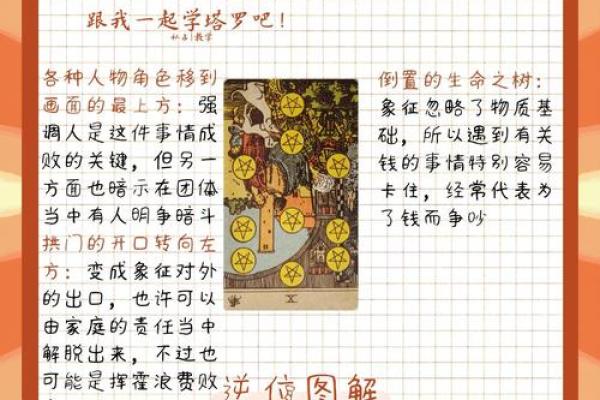 跟我一起学塔罗吧!
各种人物角色移到
画面的最上方：强
调人是这件事情成
败的关键，但另一
方面也暗示在团体
当中有人明争暗斗
拱门的开口转向左
方：变成象征对外
的出口，也许可以
由家庭的责任当中
解脱出来，不过也
可能是挥霍浪费败
X
倒置的生命之树：
象征忽略了物质基
础，所以遇到有关
钱的事情特别容易
卡住，经常代表为
了钱而争吵
逆位图解